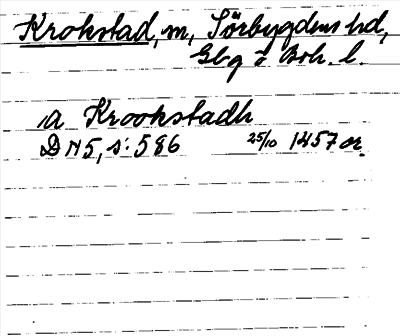 Krokstad, m, Sörbygdens hd,
Gbg o Boh. l.
,a Krookstadh
DN 5, s: 586 25/10 1457 or.